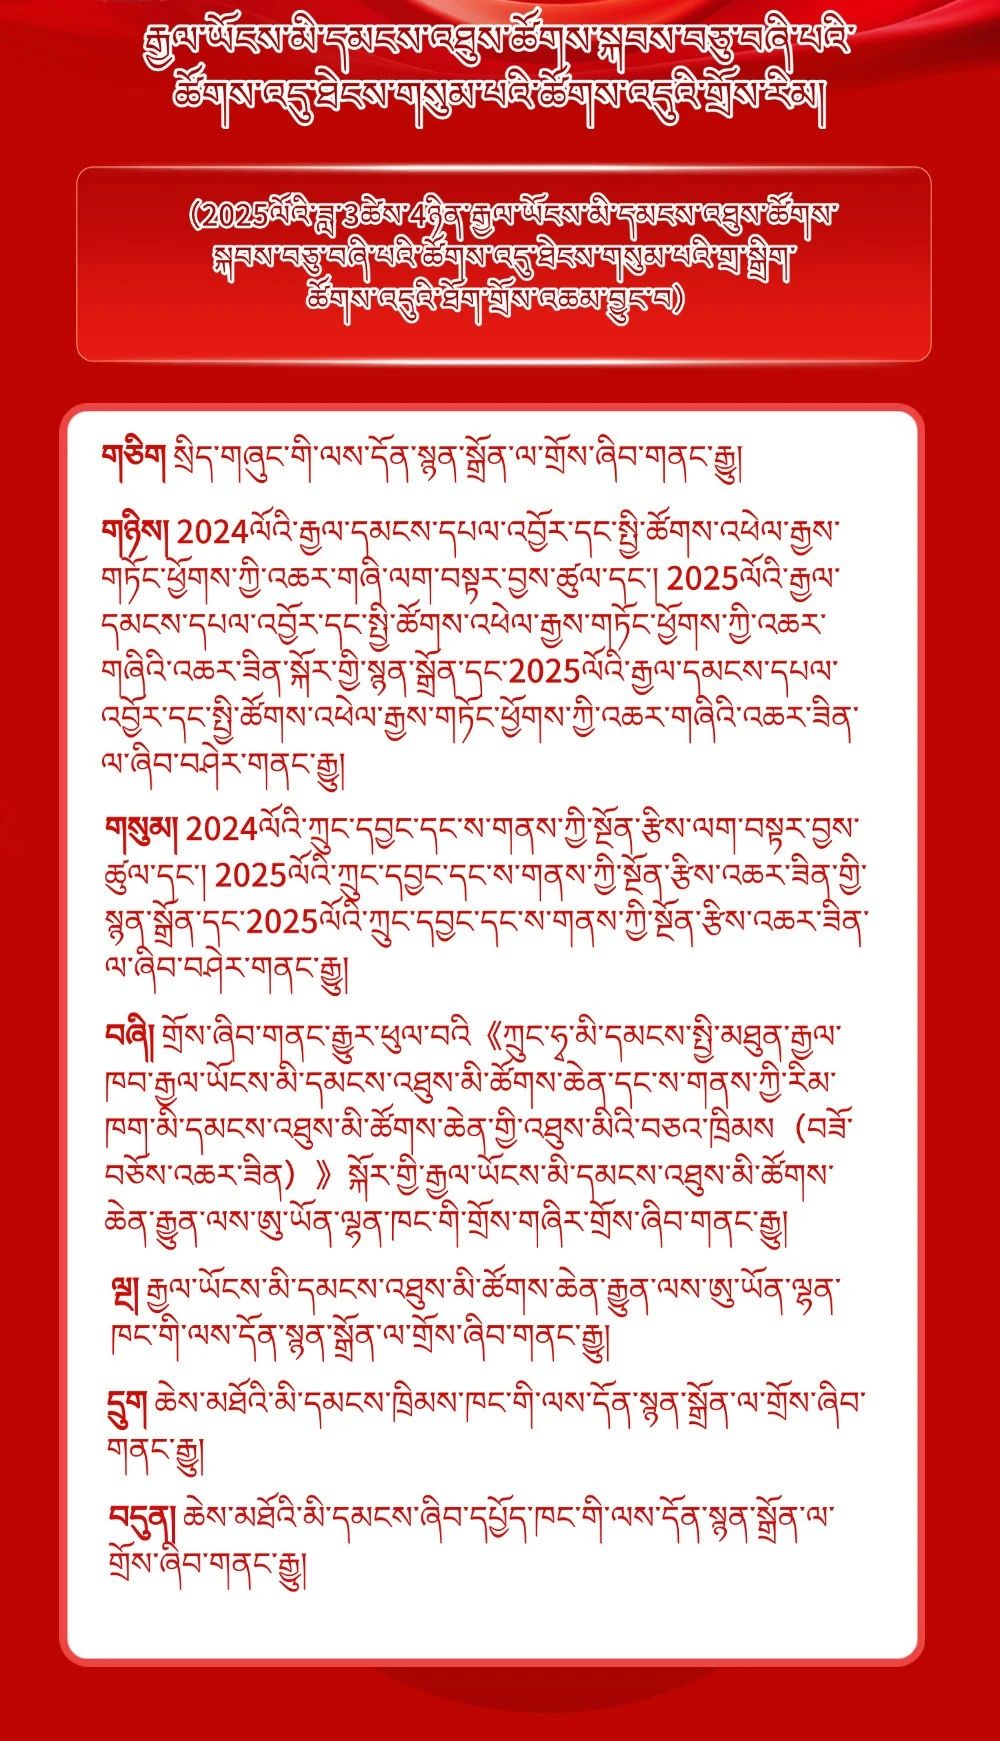 རྒྱལ་ཡོངས་མི་དམངས་འཐུས་ཚོགས་སྐབས་བཅུ་བཞི་པའི་
ཚོགས་འདུ་ཐེངས་གསུམ་པའི་ཚོགས་འདུའི་གྲོས་རིམ།
(2025ལོའི་ཟླ་3ཚེས་4ཉིན་རྒྱལ་ཡོངས་མི་དམངས་འཐུས་ཚོགས་
སྐབས་བཅུ་བཞི་པའི་ཚོགས་འདུ་ཐེངས་གསུམ་པའི་གྲ་སྒྲིག་
ཚོགས་འདུའི་ཐོག་གྲོས་འཆམ་བྱུང་བ)
གཅིག སྲིད་གཞུང་གི་ལས་དོན་སྙན་སྒྲོན་ལ་གྲོས་ཞིབ་གནང་རྒྱུ།
གཉིས། 2024ལོའི་རྒྱལ་དམངས་དཔལ་འབྱོར་དང་སྤྱི་ཚོགས་འཕེལ་རྒྱས་
གཏོང་ཕྱོགས་ཀྱི་འཆར་གཞི་ལག་བསྟར་བྱས་ཚུལ་དང་། 2025ལོའི་རྒྱལ་
དམངས་དཔལ་འབྱོར་དང་སྤྱི་ཚོགས་འཕེལ་རྒྱས་གཏོང་ཕྱོགས་ཀྱི་འཆར་
གཞིའི་འཆར་ཟིན་སྐོར་གྱི་སྙན་སྒྲོན་དང་2025ལོའི་རྒྱལ་དམངས་དཔལ་
འབྱོར་དང་སྤྱི་ཚོགས་འཕེལ་རྒྱས་གཏོང་ཕྱོགས་ཀྱི་འཆར་གཞིའི་འཆར་ཟིན་
ལ་ཞིབ་བཤེར་གནང་རྒྱུ།
གསུམ། 2024ལོའི་ཀྲུང་དབྱང་དང་ས་གནས་ཀྱི་སྔོན་རྩིས་ལག་བསྟར་བྱས་
ཚུལ་དང་། 2025ལོའི་ཀྲུང་དབྱང་དང་ས་གནས་ཀྱི་སྔོན་རྩིས་འཆར་ཟིན་གྱི་
སྙན་སྒྲོན་དང་2025ལོའི་ཀྲུང་དབྱང་དང་ས་གནས་ཀྱི་སྔོན་རྩིས་འཆར་ཟིན་
ལ་ཞིབ་བཤེར་གནང་རྒྱུ།
བཞི། གྲོས་ཞིབ་གནང་རྒྱུར་ཕུལ་བའི《ཀྲུང་ཧྭ་མི་དམངས་སྤྱི་མཐུན་རྒྱལ་
ཁབ་རྒྱལ་ཡོངས་མི་དམངས་འཐུས་མི་ཚོགས་ཆེན་དང་ས་གནས་ཀྱི་རིམ་
ཁག་མི་དམངས་འཐུས་མི་ཚོགས་ཆེན་གྱི་འཐུས་མིའི་བཅའ་ཁྲིམས（བཟོ་
བཅོས་འཆར་ཟིན）》སྐོར་གྱི་རྒྱལ་ཡོངས་མི་དམངས་འཐུས་མི་ཚོགས་
ཆེན་རྒྱུན་ལས་ཨུ་ཡོན་ལྷན་ཁང་གི་གྲོས་གཞིར་གྲོས་ཞིབ་གནང་རྒྱུ།
ལྔ། རྒྱལ་ཡོངས་མི་དམངས་འཐུས་མི་ཚོགས་ཆེན་རྒྱུན་ལས་ཨུ་ཡོན་ལྷན་
ཁང་གི་ལས་དོན་སྙན་སྒྲོན་ལ་གྲོས་ཞིབ་གནང་རྒྱུ།
དྲུག ཆེས་མཐོའི་མི་དམངས་ཁྲིམས་ཁང་གི་ལས་དོན་སྙན་སྒྲོན་ལ་གྲོས་ཞིབ་
གནང་རྒྱུ།
བདུན། ཆེས་མཐོའི་མི་དམངས་ཞིབ་དཔྱོད་ཁང་གི་ལས་དོན་སྙན་སྒྲོན་ལ་
གྲོས་ཞིབ་གནང་རྒྱུ།